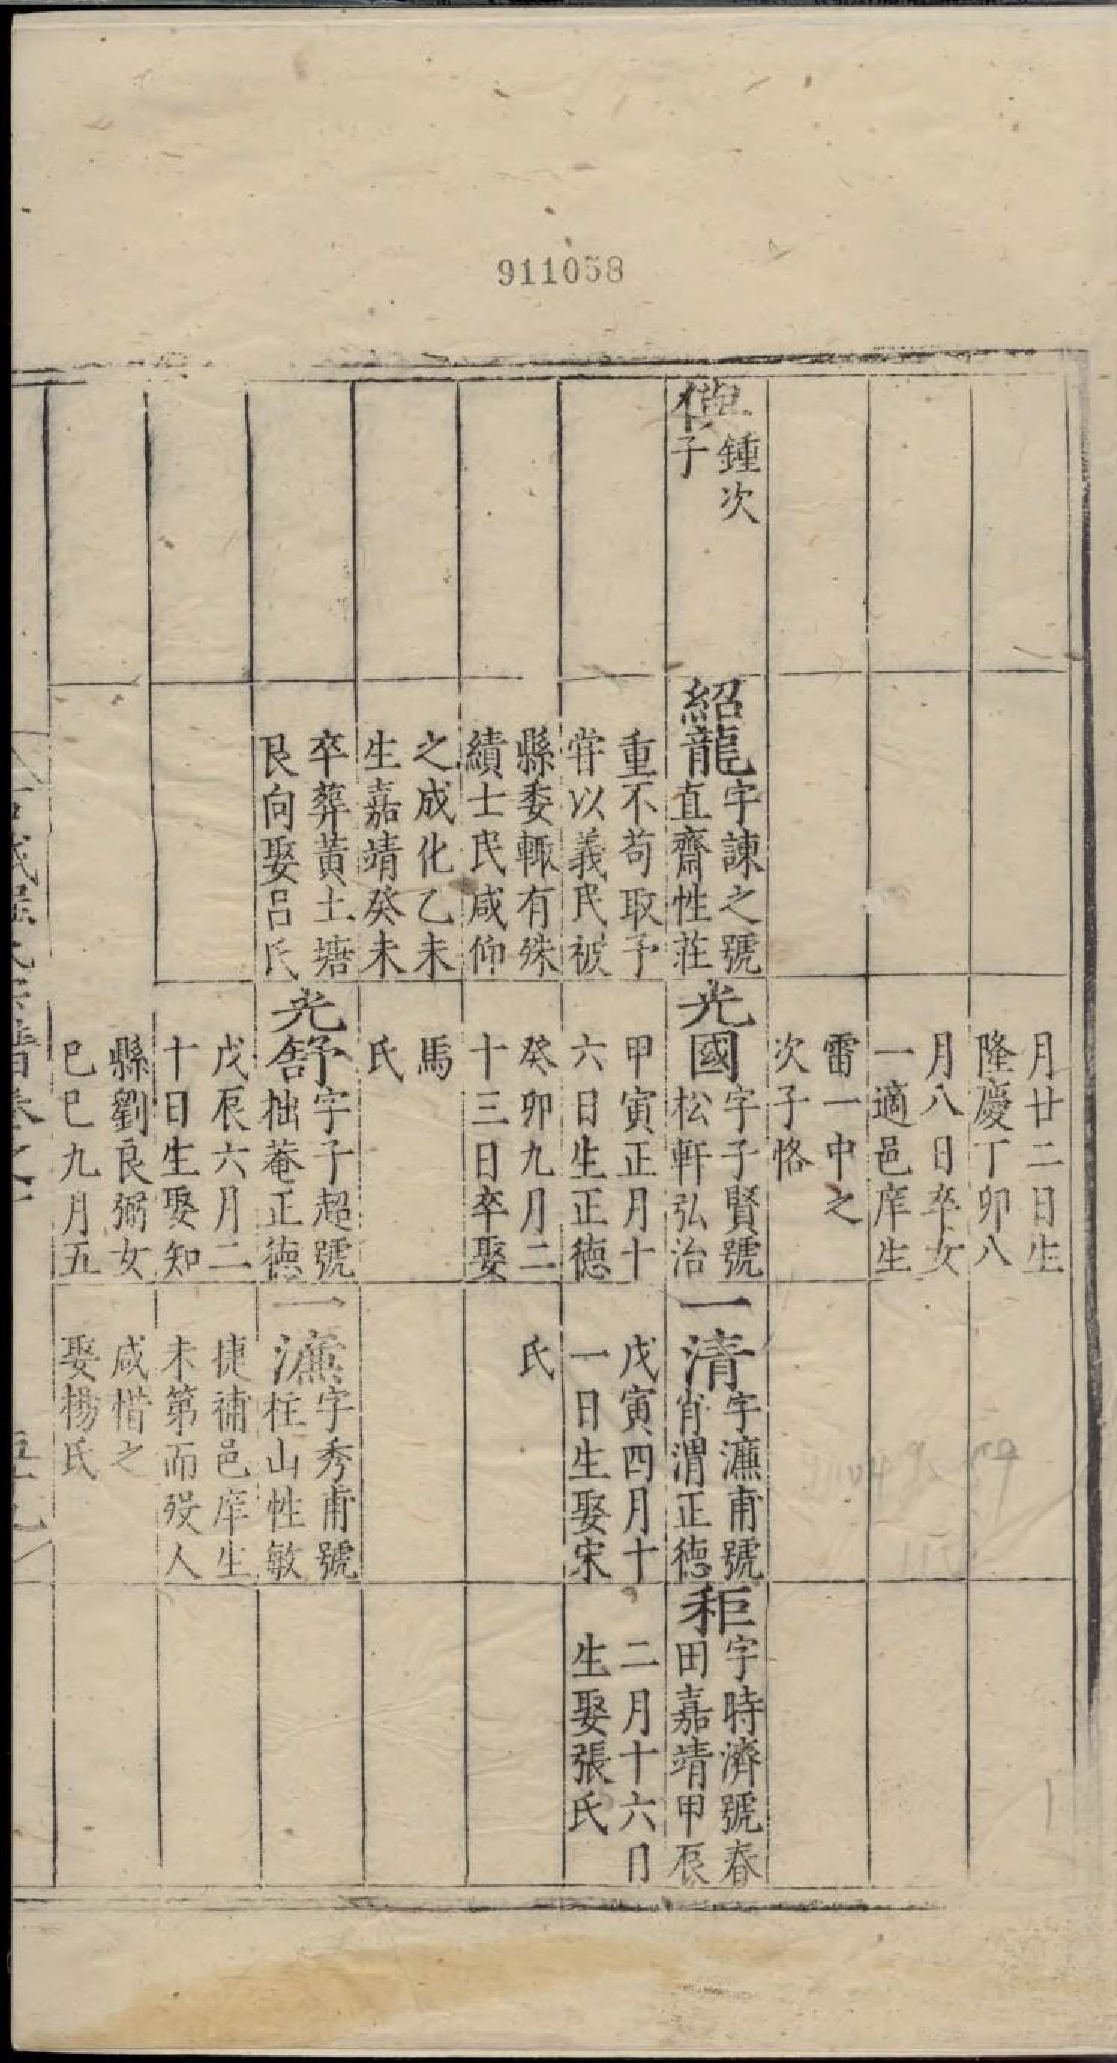 911058
鍾次
子
紹龍
字諫之號
直齋性莊
重不苟取予
嘗以義民被
縣委輙有殊
績士民咸仰
之成化乙未
生嘉靖癸未
卒葬黃土塘
艮向娶呂氏
月廿二日生
隆慶丁卯八
月八日卒女
一適邑庠生
雷一中之
次子恪
光國
字子賢號
松軒弘治
甲寅正月十
六日生正德
癸卯九月二
十三日卒娶
馬
氏
光舒
字子超號
拙菴正德
戊辰六月二
十日生娶知
縣劉良弼女
巳巳九月五
一清
字濂甫號
肖渭正德
戊寅四月十
一日生娶宋
氏
一濂
字秀甫號
柱山性敏
捷補邑庠生
未第而歿人
咸惜之
娶楊氏
秬
字時濟號春
田嘉靖甲辰
二月十六日
生娶張氏